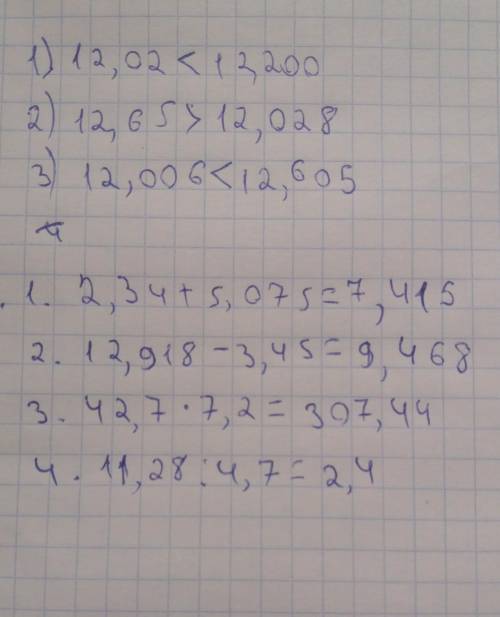 1) 12,02 < 12,200
2) 12,65 > 12,028
3) 12,006 < 12,605
4
1. 2,34 + 5,075 = 7,415
2. 12,918 - 3,45 = 9,468
3. 42,7 · 7,2 = 307,44
4. 11,28 : 4,7 = 2,4